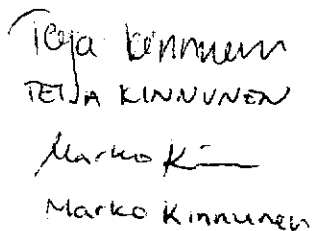 Teija Kinnunen
TEIJA KINNUNEN
Marko K
Marko Kinnunen